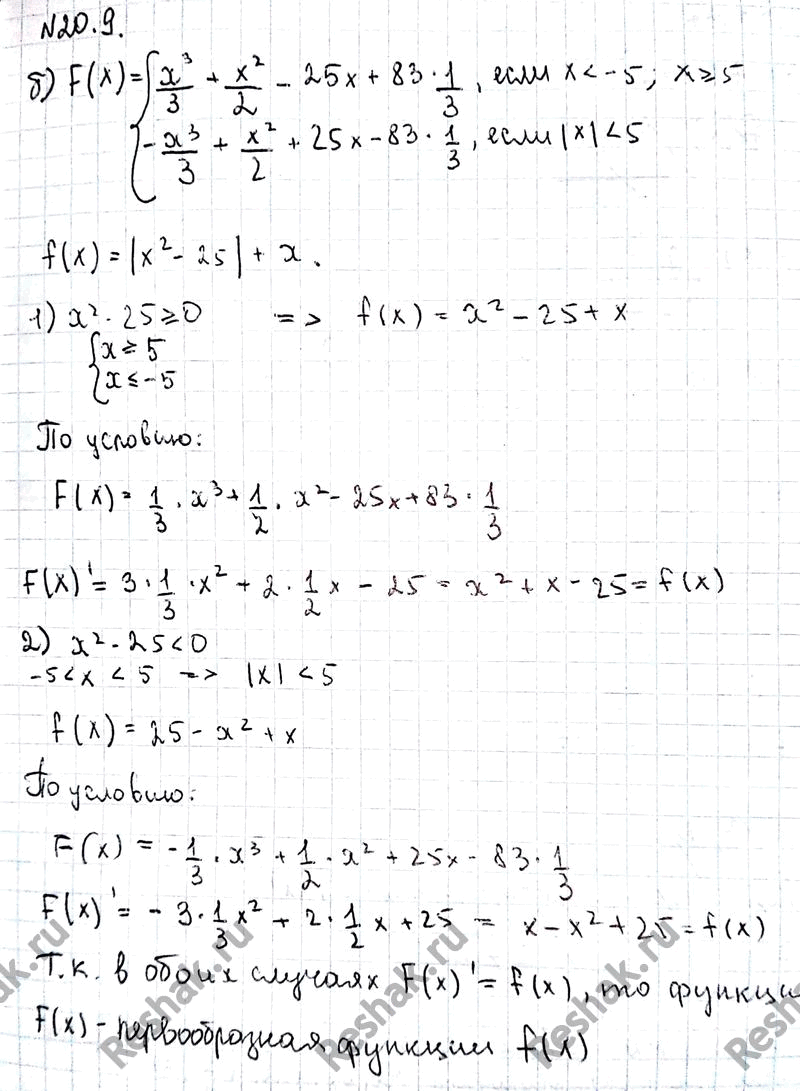 N20.9.
б) F(x)= { x³/3 + x²/2 - 25x + 83·1/3, если x < -5; x ≥ 5
-x³/3 + x²/2 + 25x - 83·1/3, если |x| < 5
f(x) = |x² - 25| + x.
1) x² - 25 ≥ 0 => f(x) = x² - 25 + x
{ x ≥ 5
x ≤ -5
По условию:
F(x) = 1/3 · x³ + 1/2 · x² - 25x + 83 · 1/3
F(x)' = 3 · 1/3 · x² + 2 · 1/2 x - 25 = x² + x - 25 = f(x)
2) x² - 25 < 0
-5 < x < 5 => |x| < 5
f(x) = 25 - x² + x
По условию:
F(x) = -1/3 · x³ + 1/2 · x² + 25x - 83 · 1/3
F(x)' = - 3 · 1/3 x² + 2 · 1/2 x + 25 = x - x² + 25 = f(x)
Т.к. в обоих случаях F(x)' = f(x), то функци
F(x) - первообразная функции f(x)
Reshak.ru Reshak.ru Reshak.ru Reshak.ru